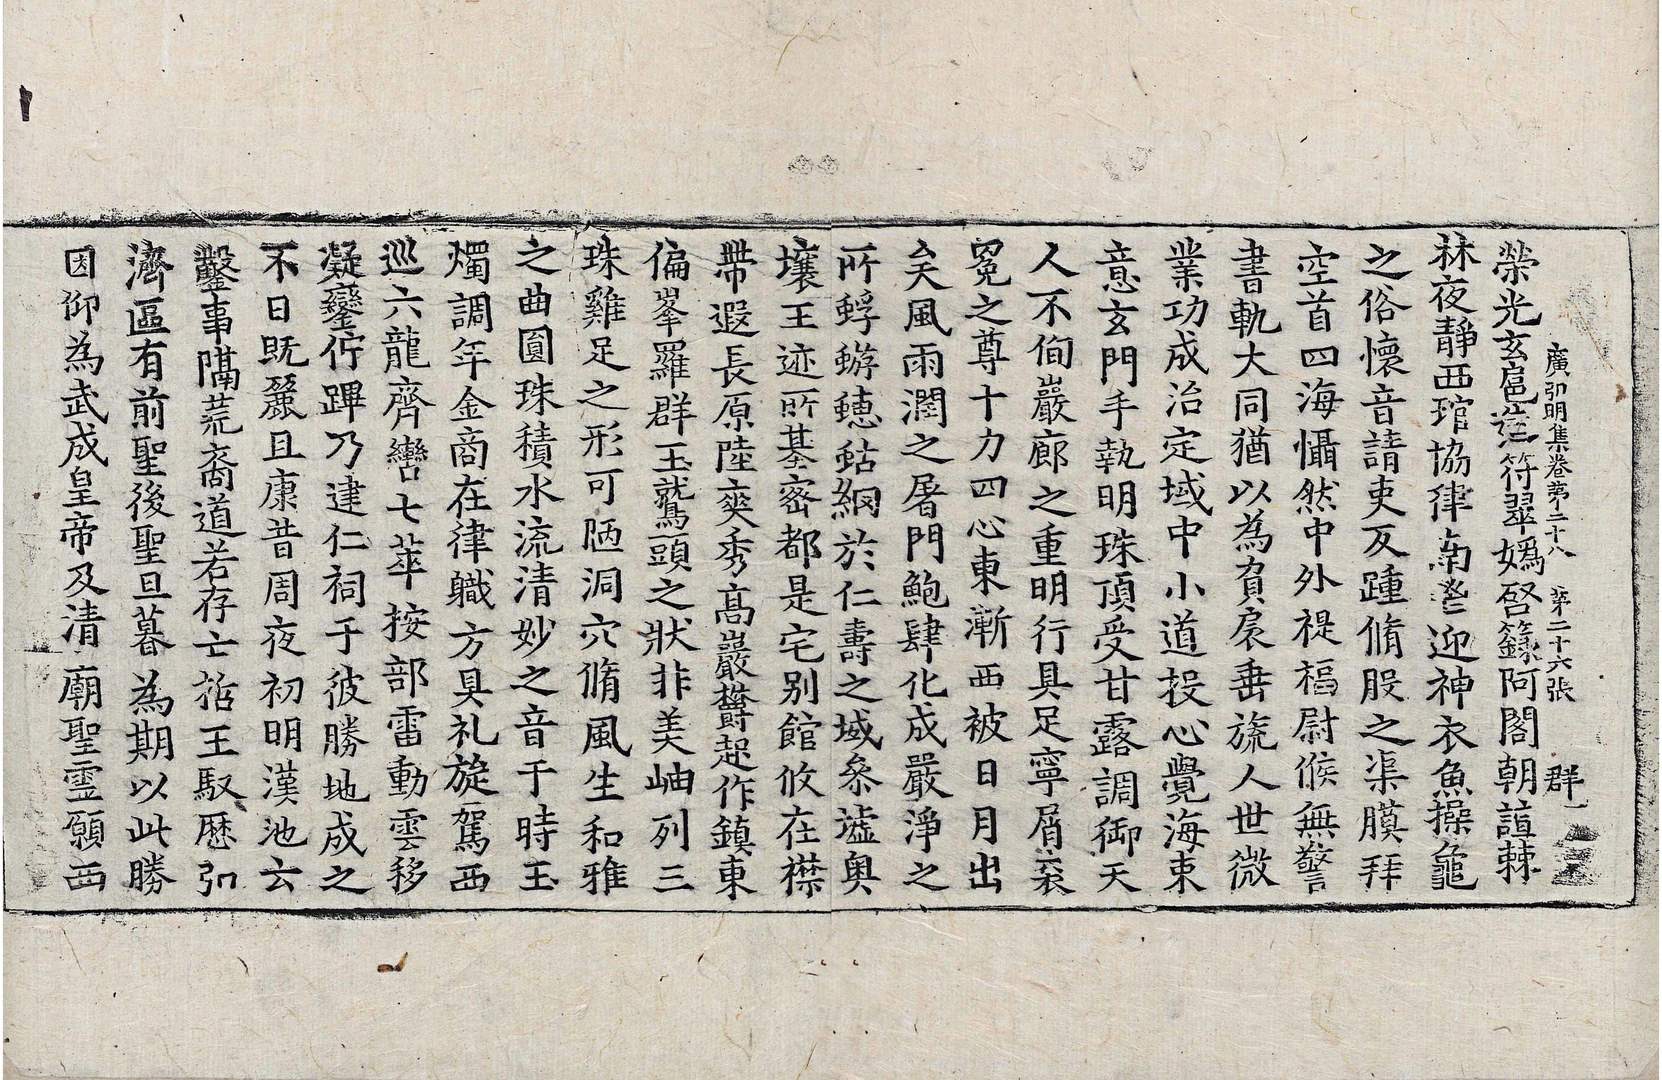 廣弘明集卷第二十八 第二十六張 群
榮光玄扈蓮符翠嬀啓籙阿閣朝諠棘
林夜靜西琯協律南鬯迎神衣魚操龜
之俗懷音請吏反踵脩股之渠膜拜
空首四海懾然中外禔福尉候無警
書軌大同猶以為負扆垂旒人世微
業功成治定域中小道投心覺海束
意玄門手執明珠頂受甘露調御天
人不侚巖廊之重明行具足寧屑衮
冕之尊十力四心東漸西被日月出
矣風雨潤之屠門鮑肆化成嚴淨之
所蜉蝣蟪蛄綱於仁壽之域叅墟奧
壤王迹所基密都是宅別館攸在襟
帶遐長原陸爽秀高巖欝起作鎮東
偏峯羅群玉鷲頭之狀非美岫列三
珠雞足之形可陋洞穴脩風生和雅
之曲圓珠積水流清妙之音于時玉
燭調年金商在律職方具礼旋駕西
巡六龍齊轡七萃按部雷動雲移
凝鑾佇蹕乃建仁祠于彼勝地成之
不日既麗且康昔周夜初明漢池云
鑿事隔荒裔道若存亡拓王馭歷弘
濟區有前聖後聖旦暮為期以此勝
因仰為武成皇帝及清廟聖靈願西